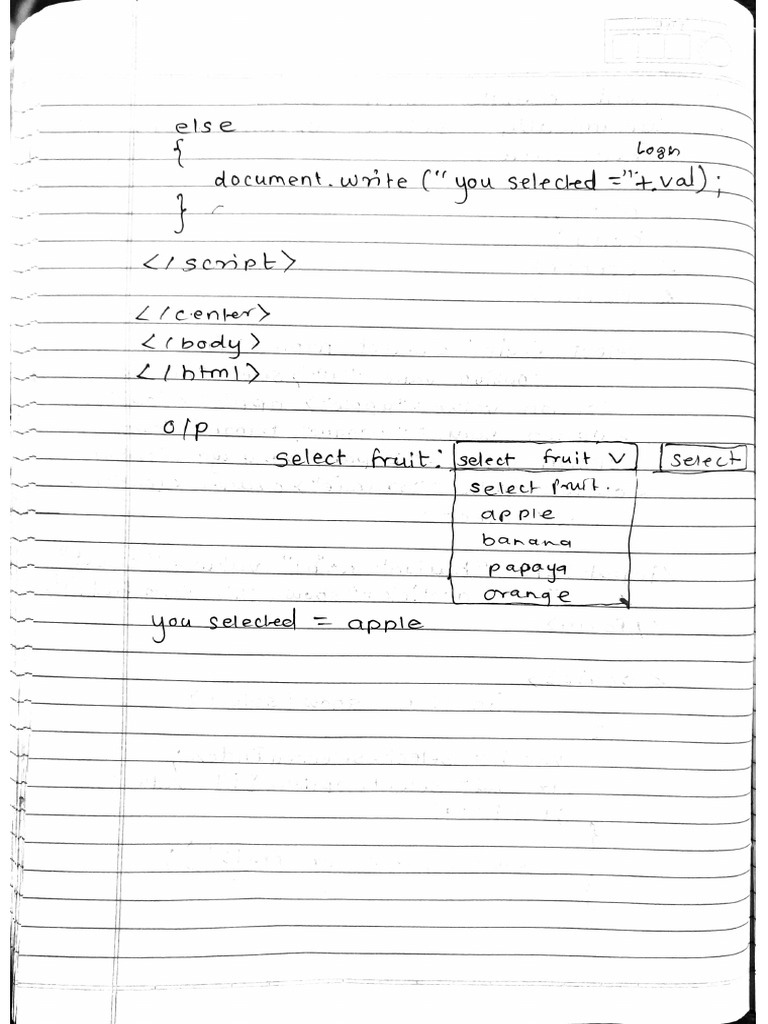 else
{
Login
document.write ("you selected ="+.val);
}
</script>
</center>
</body>
</html>
o/p
select fruit: select fruit V select
select fruit.
apple
banana
papaya
orange
you selected = apple